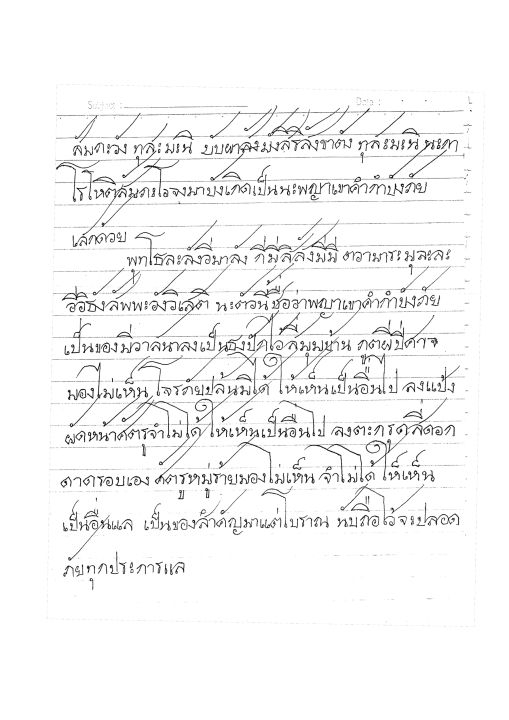 Subject : Date :
สัมภะวัง ทุสะมะนิ
โรโหติสัมภะโวจงมาบังเกิดเป็นนะพญาเขาคำกำบังภัย
เสกด้วย
พุทโธละลังวิมาลัง
นะตัวนี้ชื่อว่าพญาเขาคำกำบังภัย
เป็นของมีวาสนาลงเป็นธงปักไว้สี่มุมบ้าน ภูตผีปีศาจ
มองไม่เห็น โจรภัยปล้นมิได้ ให้เห็นเป็นอื่นไป ลงแป้ง
ผัดหน้าศัตรูจำไม่ได้ ให้เห็นเป็นอื่นไป ลงตะกรุดสี่ดอก
คาดรอบเอง ศัตรูหมู่ร้ายมองไม่เห็น จำไม่ได้ ให้เห็น
เป็นอื่นแล เป็นของสำคัญมาแต่โบราณ นับถือไว้จะปลอด
ภัยทุกประการแล